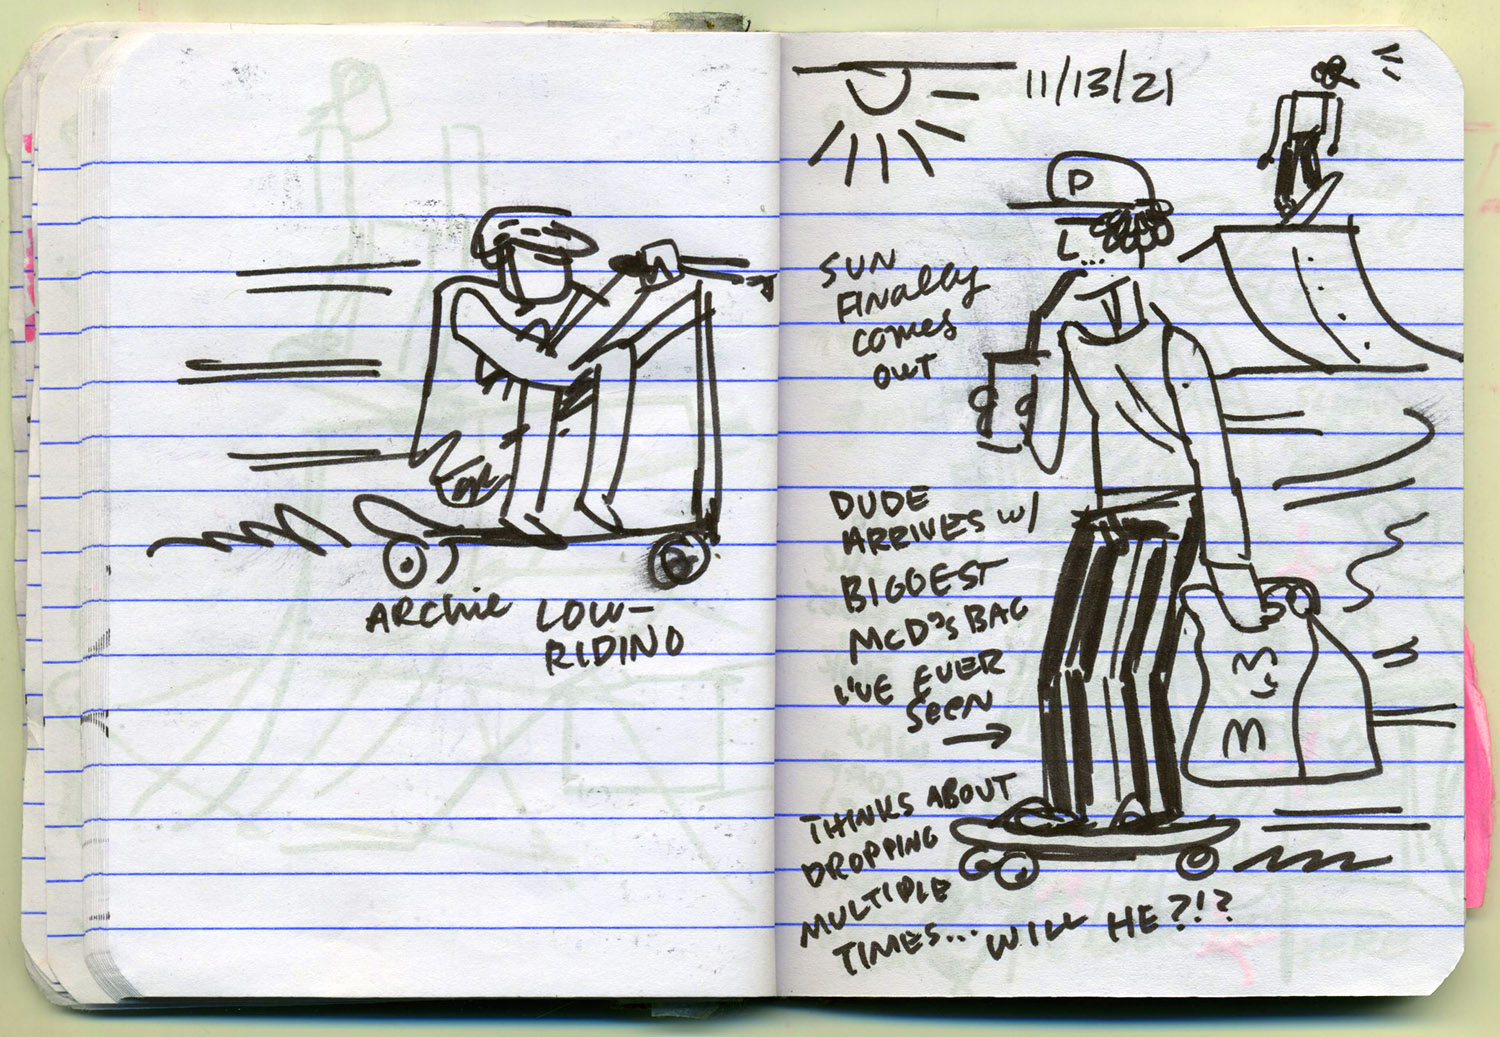 ARCHIE LOW-
RIDING
11/13/21
P
SUN
FINALLY
COMES
OUT
DUDE
ARRIVES w/
BIGGEST
McD's BAG
I'VE EVER
SEEN
M
M
THINKS ABOUT
DROPPING
MULTIPLE
TIMES... WILL HE?!?